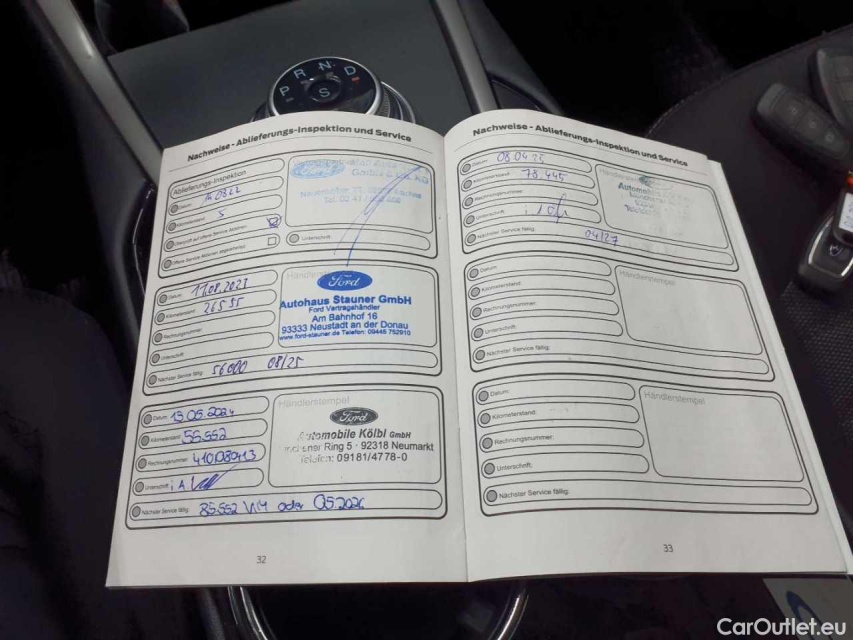 P R N D
S
Nachweise - Ablieferungs-Inspektion und Service
Ablieferungs-Inspektion
Datum:
Kilometerstand:
5
Unterschrift:
Händlerstempel
Ford
Datum: 17.08.2023
Kilometerstand: 26595
Rechnungsnummer:
Unterschrift:
Nächster Service fällig: 56000 08/25
Autohaus Stauner GmbH
Ford Vertragshändler
Am Bahnhof 16
93333 Neustadt an der Donau
www.ford-stauner.de Telefon: 09445 752910
Datum: 15.05.2024
Kilometerstand: 55.552
Rechnungsnummer:
Unterschrift: i.A
Nächster Service fällig: 85.552 km oder 05.2026
Händlerstempel
Ford
Automobile Kölbl GmbH
Ring 5 · 92318 Neumarkt
Telefon: 09181/4778-0
32
Nachweise - Ablieferungs-Inspektion und Service
Datum: 08.04.25
Kilometerstand: 78.445
Rechnungsnummer:
Unterschrift:
Nächster Service fällig: 04/27
Händlerstempel
Datum:
Kilometerstand:
Rechnungsnummer:
Unterschrift:
Nächster Service fällig:
Händlerstempel
Datum:
Kilometerstand:
Rechnungsnummer:
Unterschrift:
Nächster Service fällig:
Händlerstempel
33
CarOutlet.eu